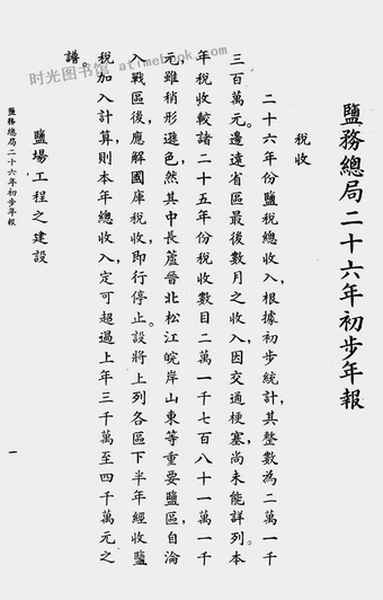 鹽務總局二十六年初步年報
稅收
二十六年份鹽稅總收入,根據初步統計,其整數為二萬一千
三百萬元。邊遠省區最後數月之收入,因交通梗塞,尚未能詳列。本
年稅收較諸二十五年份稅收數目二萬一千七百八十一萬一千
元,雖稍形遜色,然其中長蘆晉北松江皖岸山東等重要鹽區,自淪
入戰區後,應解國庫稅收,即行停止。設將上列各區下半年經收鹽
稅加入計算,則本年總收入,定可超過上年三千萬至四千萬元之
譜。
鹽場工程之建設
鹽務總局二十六年初步年報
一
时光图书馆 atimebook.com